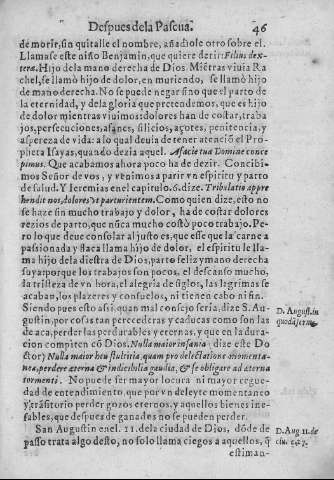 Despues dela Pascua. 46
de morir, sin quitalle el nombre, añadiole otro sobre el.
Llamase este niño Benjamin, que quiere dezir: Filius dex-
teræ. Hijo dela mano derecha de Dios. Miẽtras viuia Ra
chel, se llamò hijo de dolor, en muriendo, se llamò hijo
de mano derecha. No se puede negar sino que el parto de
la eternidad, y dela gloria que pretendemos, que es hijo
de dolor mientras viuimos: dolores han de costar, traba
jos, persecuciones, afanes, silicios, açotes, penitencia, y
aspereza de vida: a lo qual deuia de tener atenciõ el Pro
pheta Isayas, quando dezia aquel. A facie tua Domine conce
pimus. Que acabamos ahora poco ha de dezir. Concibi-
mos Señor de vos, y venimos a parir vn espiritu y parto
de salud. Y Ieremias en el capitulo. 6. dize. Tribulatio appre
hendit nos, dolores vt parturientem. Como quien dize, esto no
se haze sin mucho trabajo y dolor, ha de costar dolores
rezios de parto, que nũca mucho costò poco trabajo. Pe-
ro lo que deue consolar al justo es, que esse que la carne a
passionada y flaca llama hijo de dolor, el espiritu le lla-
ma hijo dela diestra de Dios, parto feliz y mano derecha
suya: porque los trabajos son pocos, el descanso mucho,
la tristeza de vn hora, el alegria de siglos, las lagrimas se
acaban, los plazeres y consuelos, ni tienen cabo ni fin.
Siendo pues esto assi, quan mal consejo seria, dize S. Au-
gustin, por cosas tan perecederas y caducas como son las
de aca, perder las perdurables y eternas, y que en la dura-
cion compiten cõ Dios. Nulla maior insania (dize este Do
ctor) Nulla maior heu stultitia, quam pro delectatione momenta-
nea, perdere æterna & indicibilia gaudia, & se obligare ad æterna
tormenta. No puede ser mayor locura ni mayor cegue-
dad de entendimiento, que por vn deleyte momentaneo
y trãsitorio perder gozos eternos, y aquellos bienes ine-
fables, que despues de ganados no se pueden perder.
D. August. in
San Augustin en el. 11. dela ciudad de Dios, dõde de
passo trata algo desto, no solo llama ciegos a aquellos, q̃
D. Aug. 11. de
estiman-